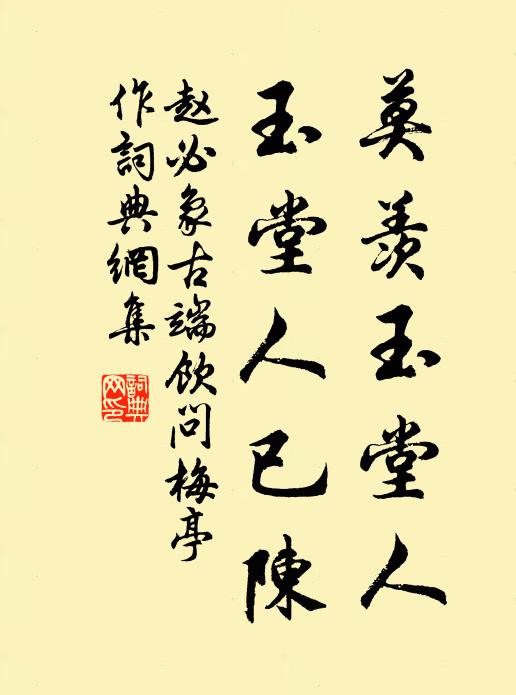 莫羨玉堂人
玉堂人已陳
赵必象古端飲问梅亭
作詞典網集
詞典
网印